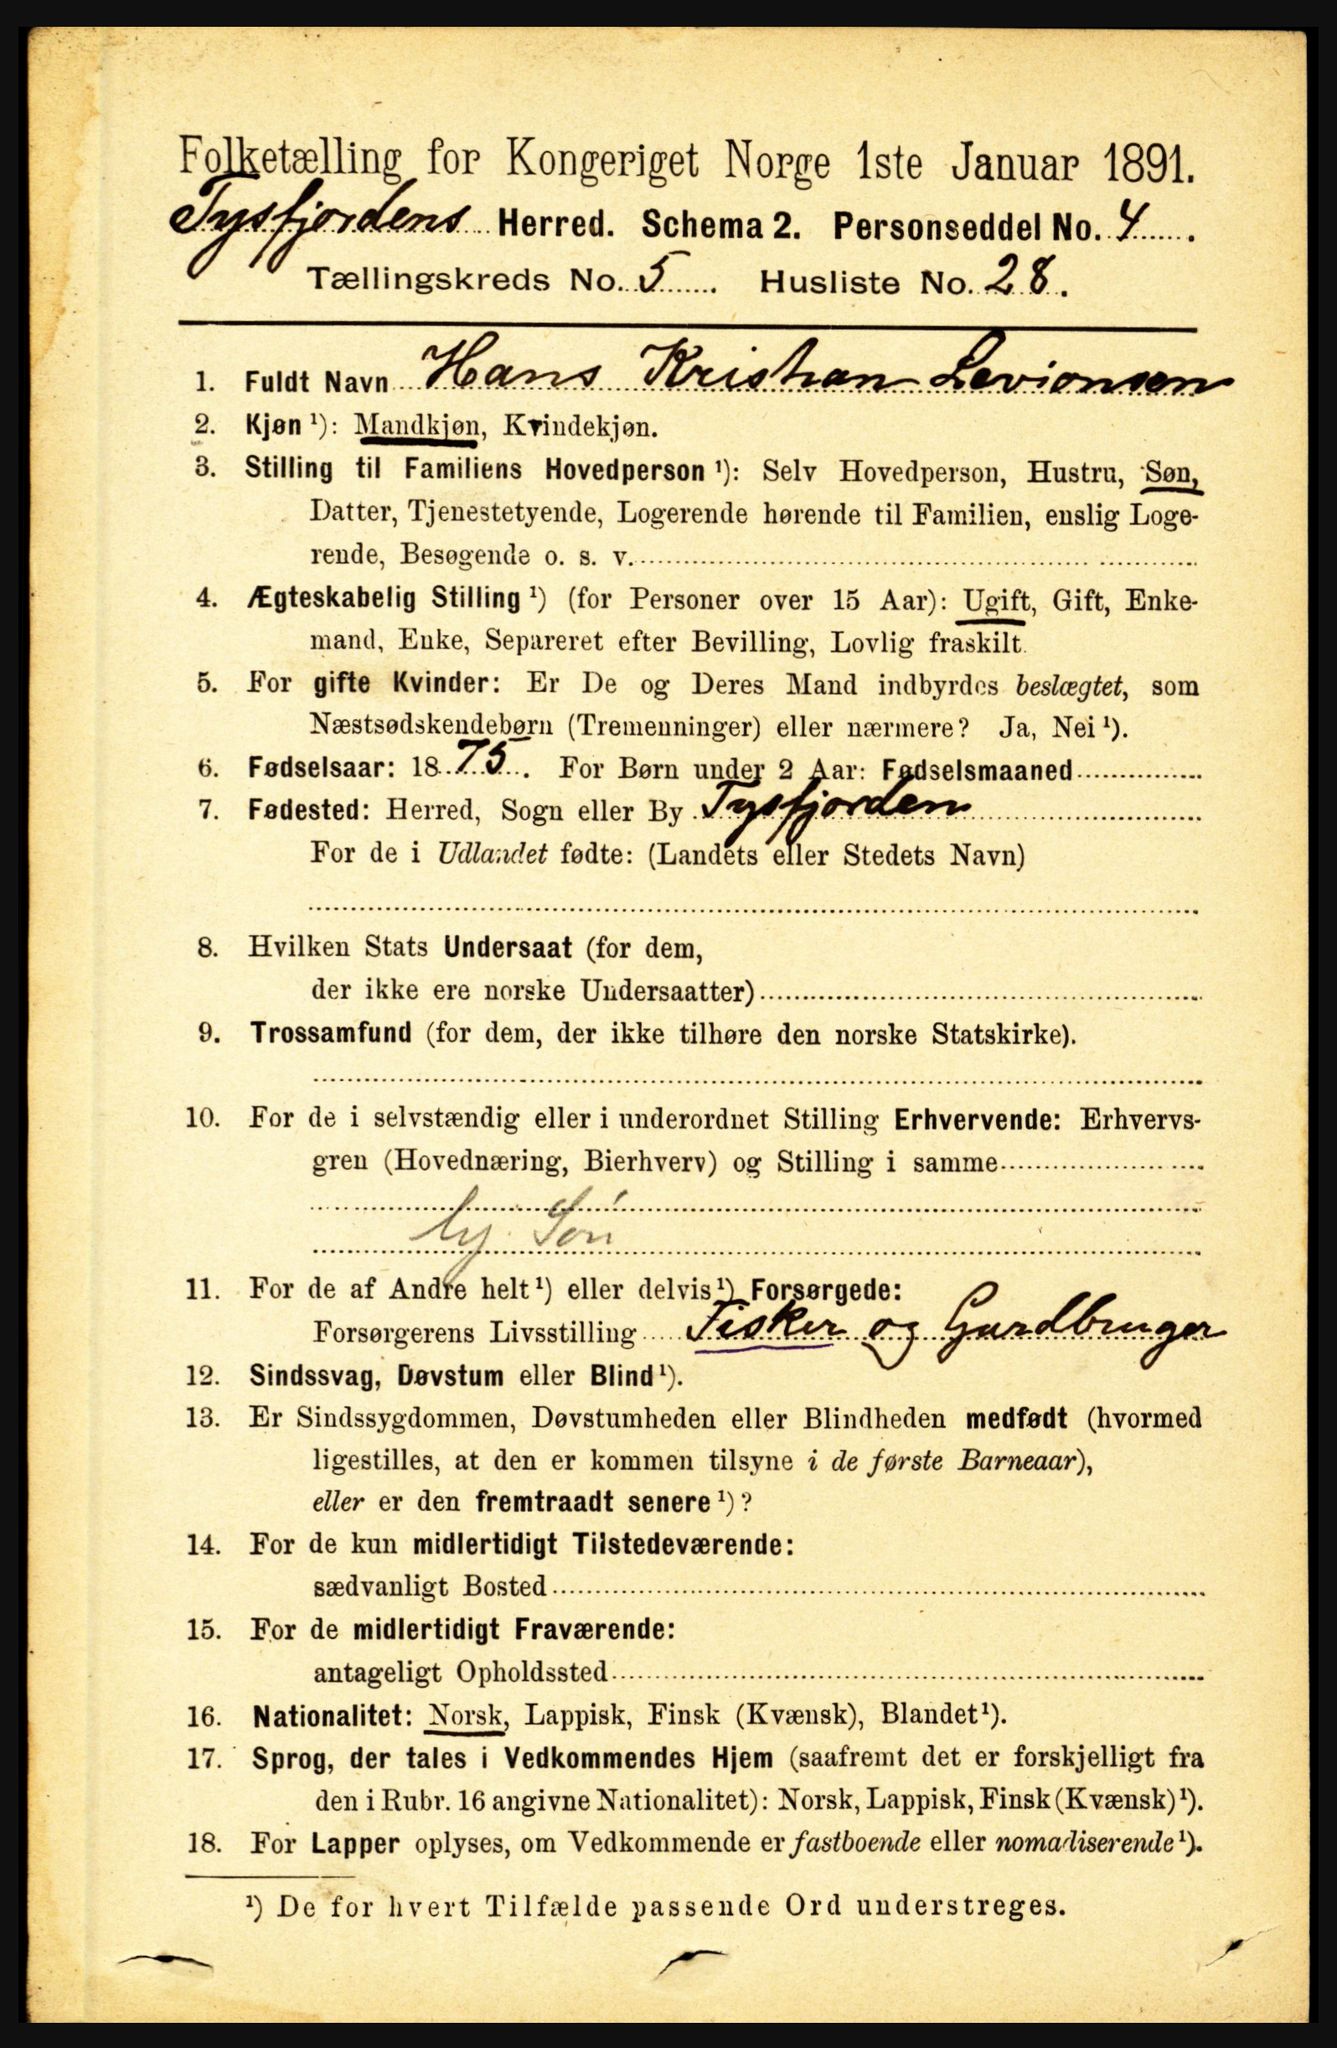 Folketælling for Kongeriget Norge 1ste Januar 1891.
Tysfjordens Herred. Schema 2. Personseddel No. 4.
Tællingskreds No. 5. Husliste No. 28.
1. Fuldt Navn Hans Kristian Levionsen
2. Kjøn ¹): Mandkjøn, Kvindekjøn.
3. Stilling til Familiens Hovedperson ¹): Selv Hovedperson, Hustru, Søn,
Datter, Tjenestetyende, Logerende hørende til Familien, enslig Loge-
rende, Besøgende o. s. v.
4. Ægteskabelig Stilling ¹) (for Personer over 15 Aar): Ugift, Gift, Enke-
mand, Enke, Separeret efter Bevilling, Lovlig fraskilt.
5. For gifte Kvinder: Er De og Deres Mand indbyrdes beslægtet, som
Næstsødskendebørn (Tremenninger) eller nærmere? Ja, Nei ¹).
6. Fødselsaar: 1875. For Børn under 2 Aar: Fødselsmaaned
7. Fødested: Herred, Sogn eller By Tysfjorden
For de i Udlandet fødte: (Landets eller Stedets Navn)
8. Hvilken Stats Undersaat (for dem,
der ikke ere norske Undersaatter)
9. Trossamfund (for dem, der ikke tilhøre den norske Statskirke).
10. For de i selvstændig eller i underordnet Stilling Erhvervende: Erhvervs-
gren (Hovednæring, Bierhverv) og Stilling i samme
Søn
11. For de af Andre helt ¹) eller delvis ¹) Forsørgede:
Forsørgerens Livsstilling Fisker og Gardbruger
12. Sindssvag, Døvstum eller Blind ¹).
13. Er Sindssygdommen, Døvstumheden eller Blindheden medfødt (hvormed
ligestilles, at den er kommen tilsyne i de første Barneaar),
eller er den fremtraadt senere ¹)?
14. For de kun midlertidigt Tilstedeværende:
sædvanligt Bosted
15. For de midlertidigt Fraværende:
antageligt Opholdssted
16. Nationalitet: Norsk, Lappisk, Finsk (Kvænsk), Blandet ¹).
17. Sprog, der tales i Vedkommendes Hjem (saafremt det er forskjelligt fra
den i Rubr. 16 angivne Nationalitet): Norsk, Lappisk, Finsk (Kvænsk) ¹).
18. For Lapper oplyses, om Vedkommende er fastboende eller nomadiserende ¹).
¹) De for hvert Tilfælde passende Ord understreges.